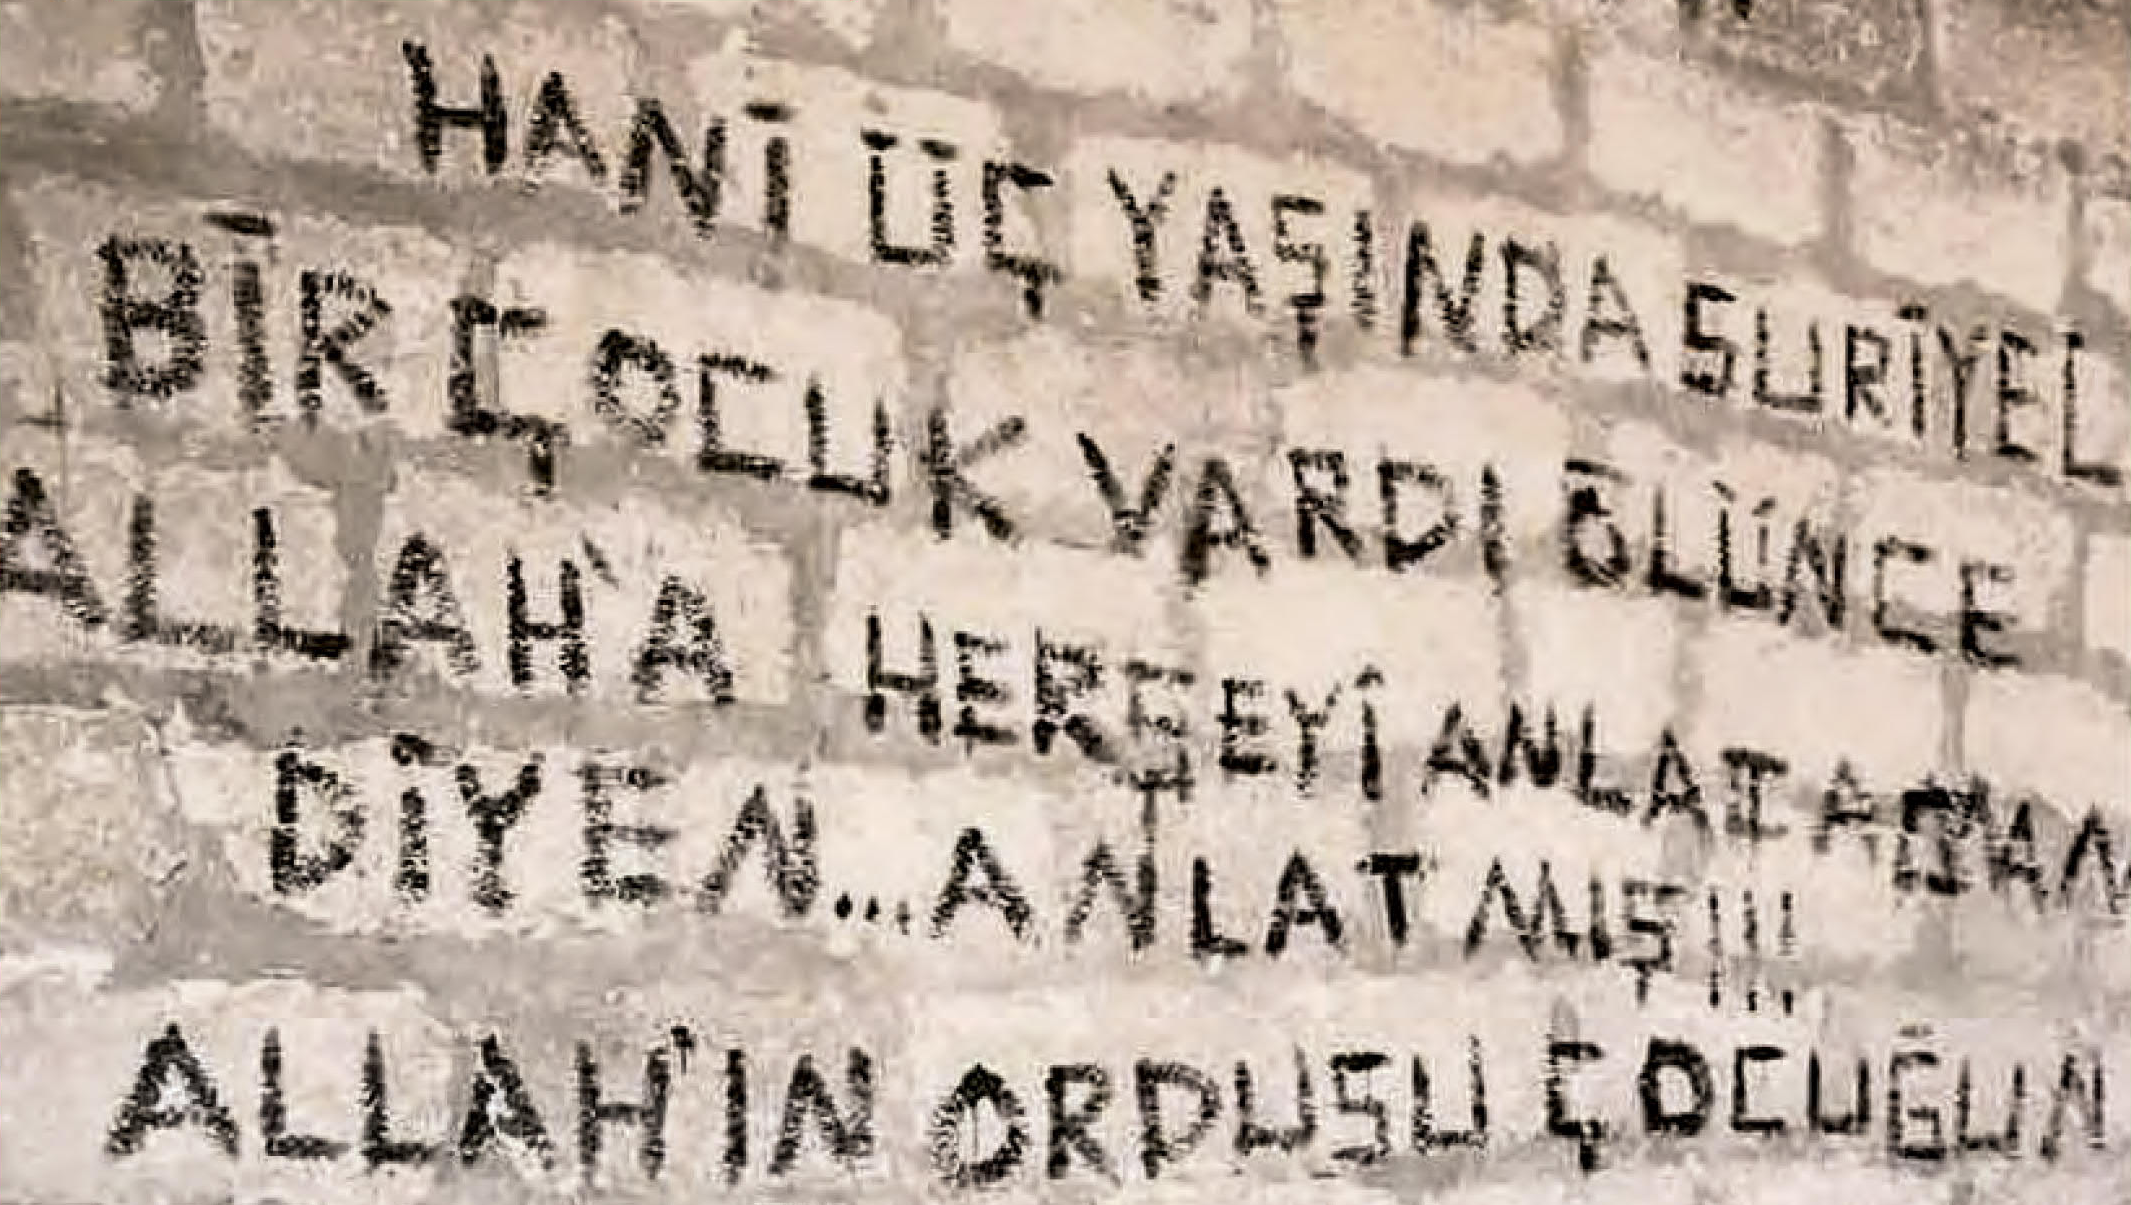 HANİ ÜÇ YAŞINDA SURİYEL
BİR ÇOCUK VARDI ÖLÜNCE
ALLAH'A HERŞEYİ ANLATACAĞIM
DİYEN... ANLATMIŞ!!!
ALLAH'IN ORDUSU ÇOCUĞUN